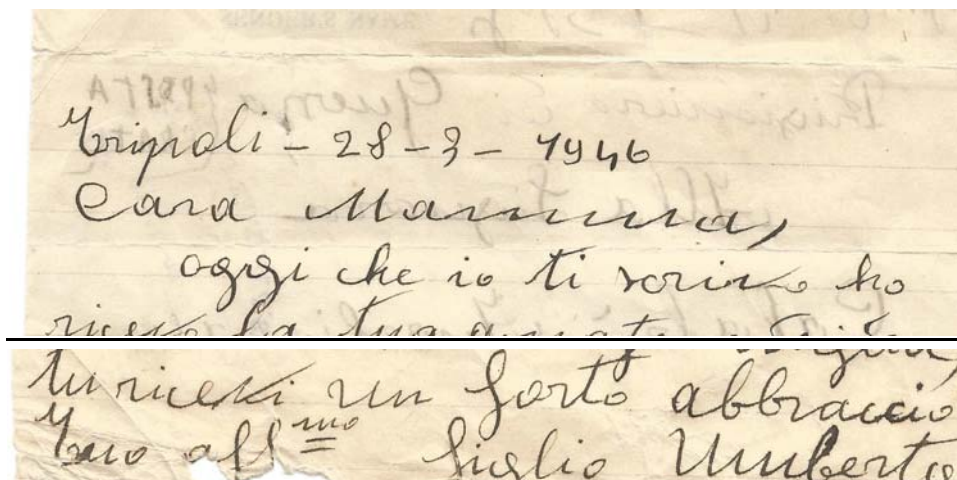 Tripoli - 28 - 3 - 1946
Cara Mamma,
oggi che io ti scrivo ho
la tua
tu ricevi un forte abbraccio
tuo aff.mo figlio Umberto